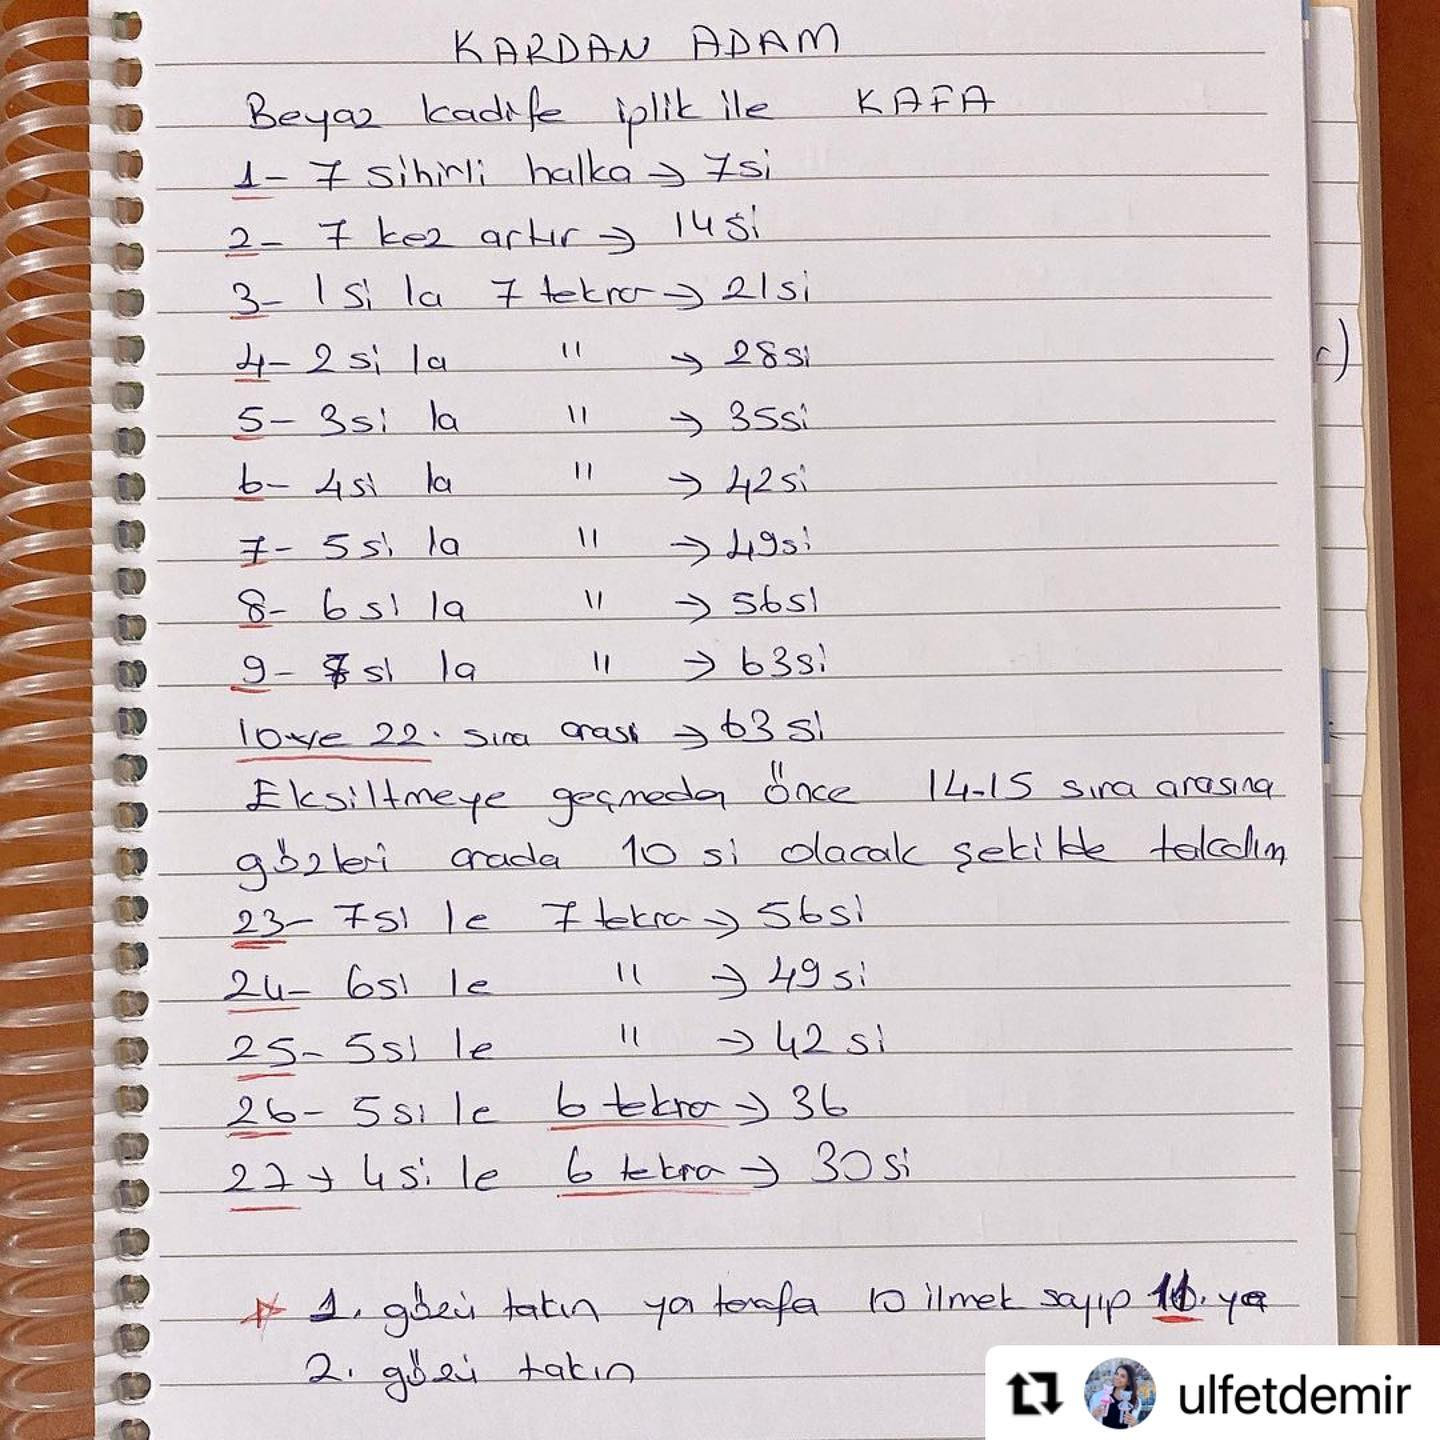 KARDAN ADAM
Beyaz kadife iplik ile KAFA
1- 7 sihirli halka → 7si
2- 7 kez artır → 14si
3- 1si la 7 tekra → 21si
4- 2si la " → 28si
5- 3si la " → 35si
6- 4si la " → 42si
7- 5si la " → 49si
8- 6si la " → 56si
9- 7si la " → 63si
10 ve 22. sıra arası → 63si
Eksiltmeye geçmeden önce 14-15 sıra arasına
gözleri arada 10 si olacak şekilde takdım
23- 7si le 7 tekra → 56si
24- 6si le " → 49si
25- 5si le " → 42si
26- 5si le 6 tekra → 36
27 → 4si le 6 tekra → 30si
1. gözü takın ya tarafa 10 ilmek sayıp 11. ye
2. gözü takın
ulfetdemir